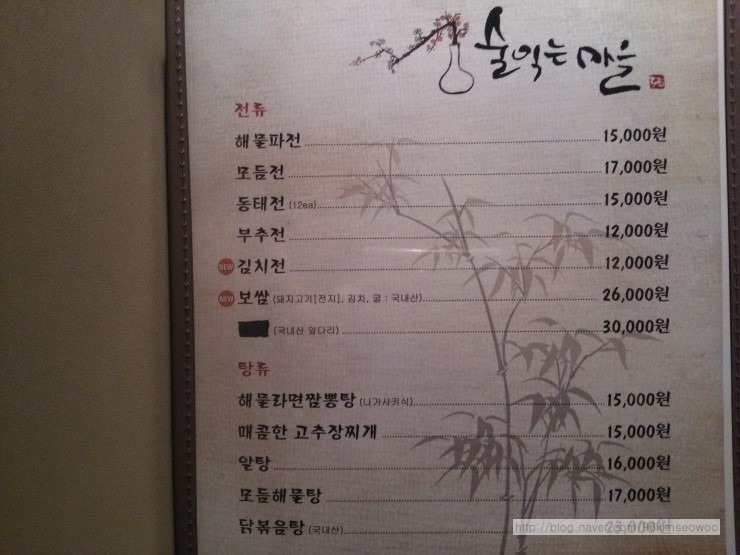 술익는 마을
전류
해물파전 15,000원
모듬전 17,000원
동태전 (12ea) 15,000원
부추전 12,000원
NEW 김치전 12,000원
NEW 보쌈 (돼지고기[전지], 김치, 굴 : 국내산) 26,000원
(국내산 앞다리) 30,000원
탕류
해물라면짬뽕탕 (나가사키식) 15,000원
매콤한 고추장찌개 15,000원
알탕 16,000원
모듬해물탕 17,000원
닭볶음탕 (국내산) 23,000원